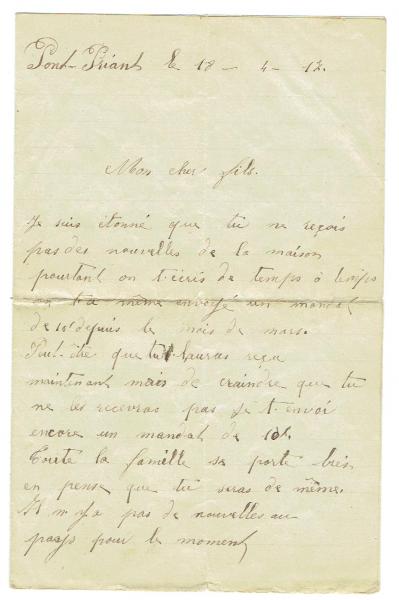 Pont-Priant le 18 - 4 - 12.
Mon cher fils.
Je suis étonné que tu ne reçois
pas des nouvelles de la maison
pourtant on t-écris de temps à temps
on t-a même envoyé un mandat
de 10f depuis le mois de mars.
Peut-être que tu l'auras reçu
maintenant mais de craindre que tu
ne les recevras pas je t-envoi
encore un mandat de 10f.
Toute la famille se porte bien
en pense que tu seras de même.
Il n'y a pas de nouvelles au
pays pour le moment